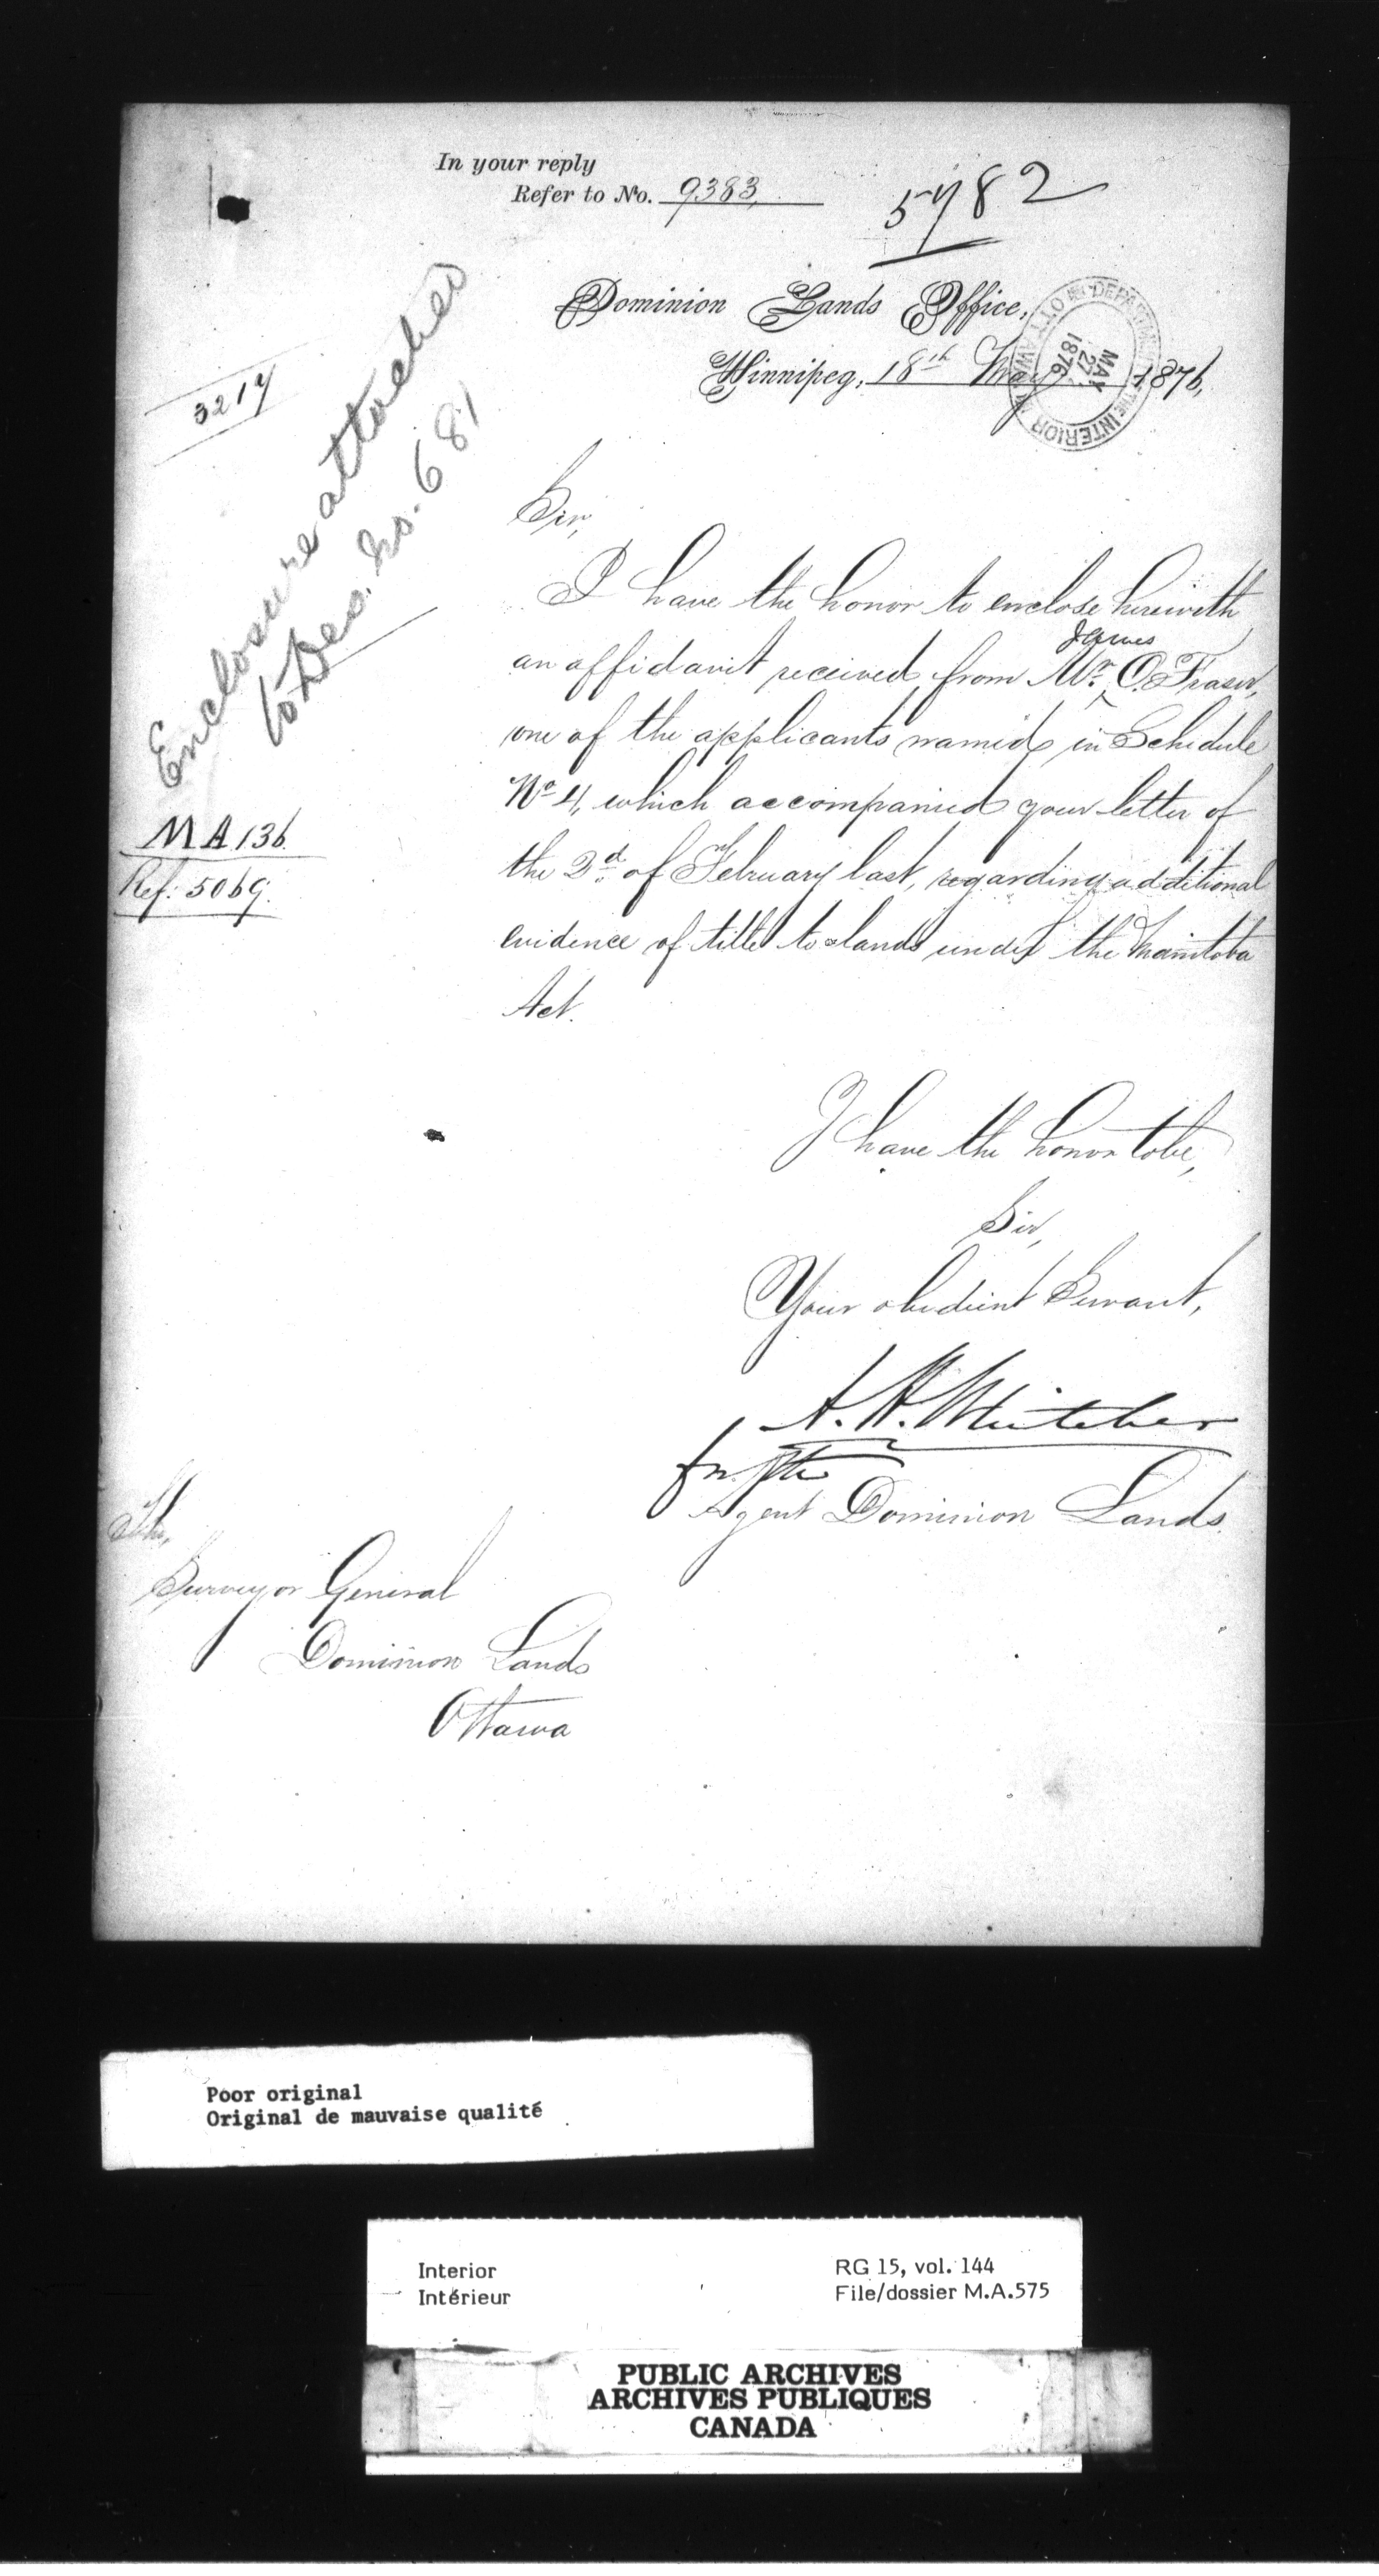 In your reply
Refer to No. 9383,
5782
Dominion Lands Office,
Winnipeg, 18th May 1876,
DEPARTMENT OF THE INTERIOR OTTAWA
MAY
27
1876
3217
Enclosure attached
to No. 681
MA 136.
Ref: 5069.
Sir,
I have the honor to enclose herewith
James
an affidavit received from Mr. O. Fraser,
one of the applicants named in Schedule
No 4, which accompanied your letter of
the 2d. of February last, regarding additional
evidence of title to lands under the Manitoba
Act.
I have the honor to be,
Sir,
Your obedient Servant,
A. H. Whitcher
for the
Agent Dominion Lands.
The,
Surveyor General
Dominion Lands
Ottawa
Poor original
Original de mauvaise qualité
Interior
Intérieur
RG 15, vol. 144
File/dossier M.A.575
PUBLIC ARCHIVES
ARCHIVES PUBLIQUES
CANADA